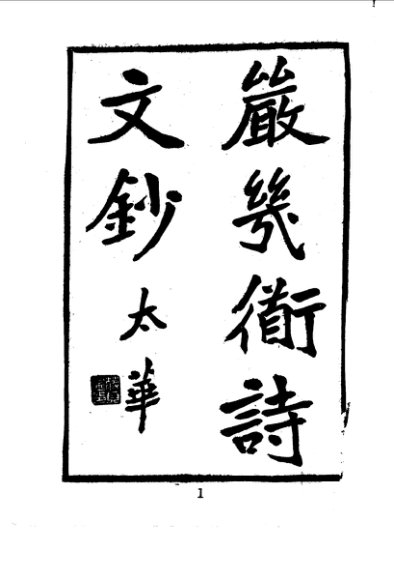 嚴幾衜詩
文鈔
太華
1